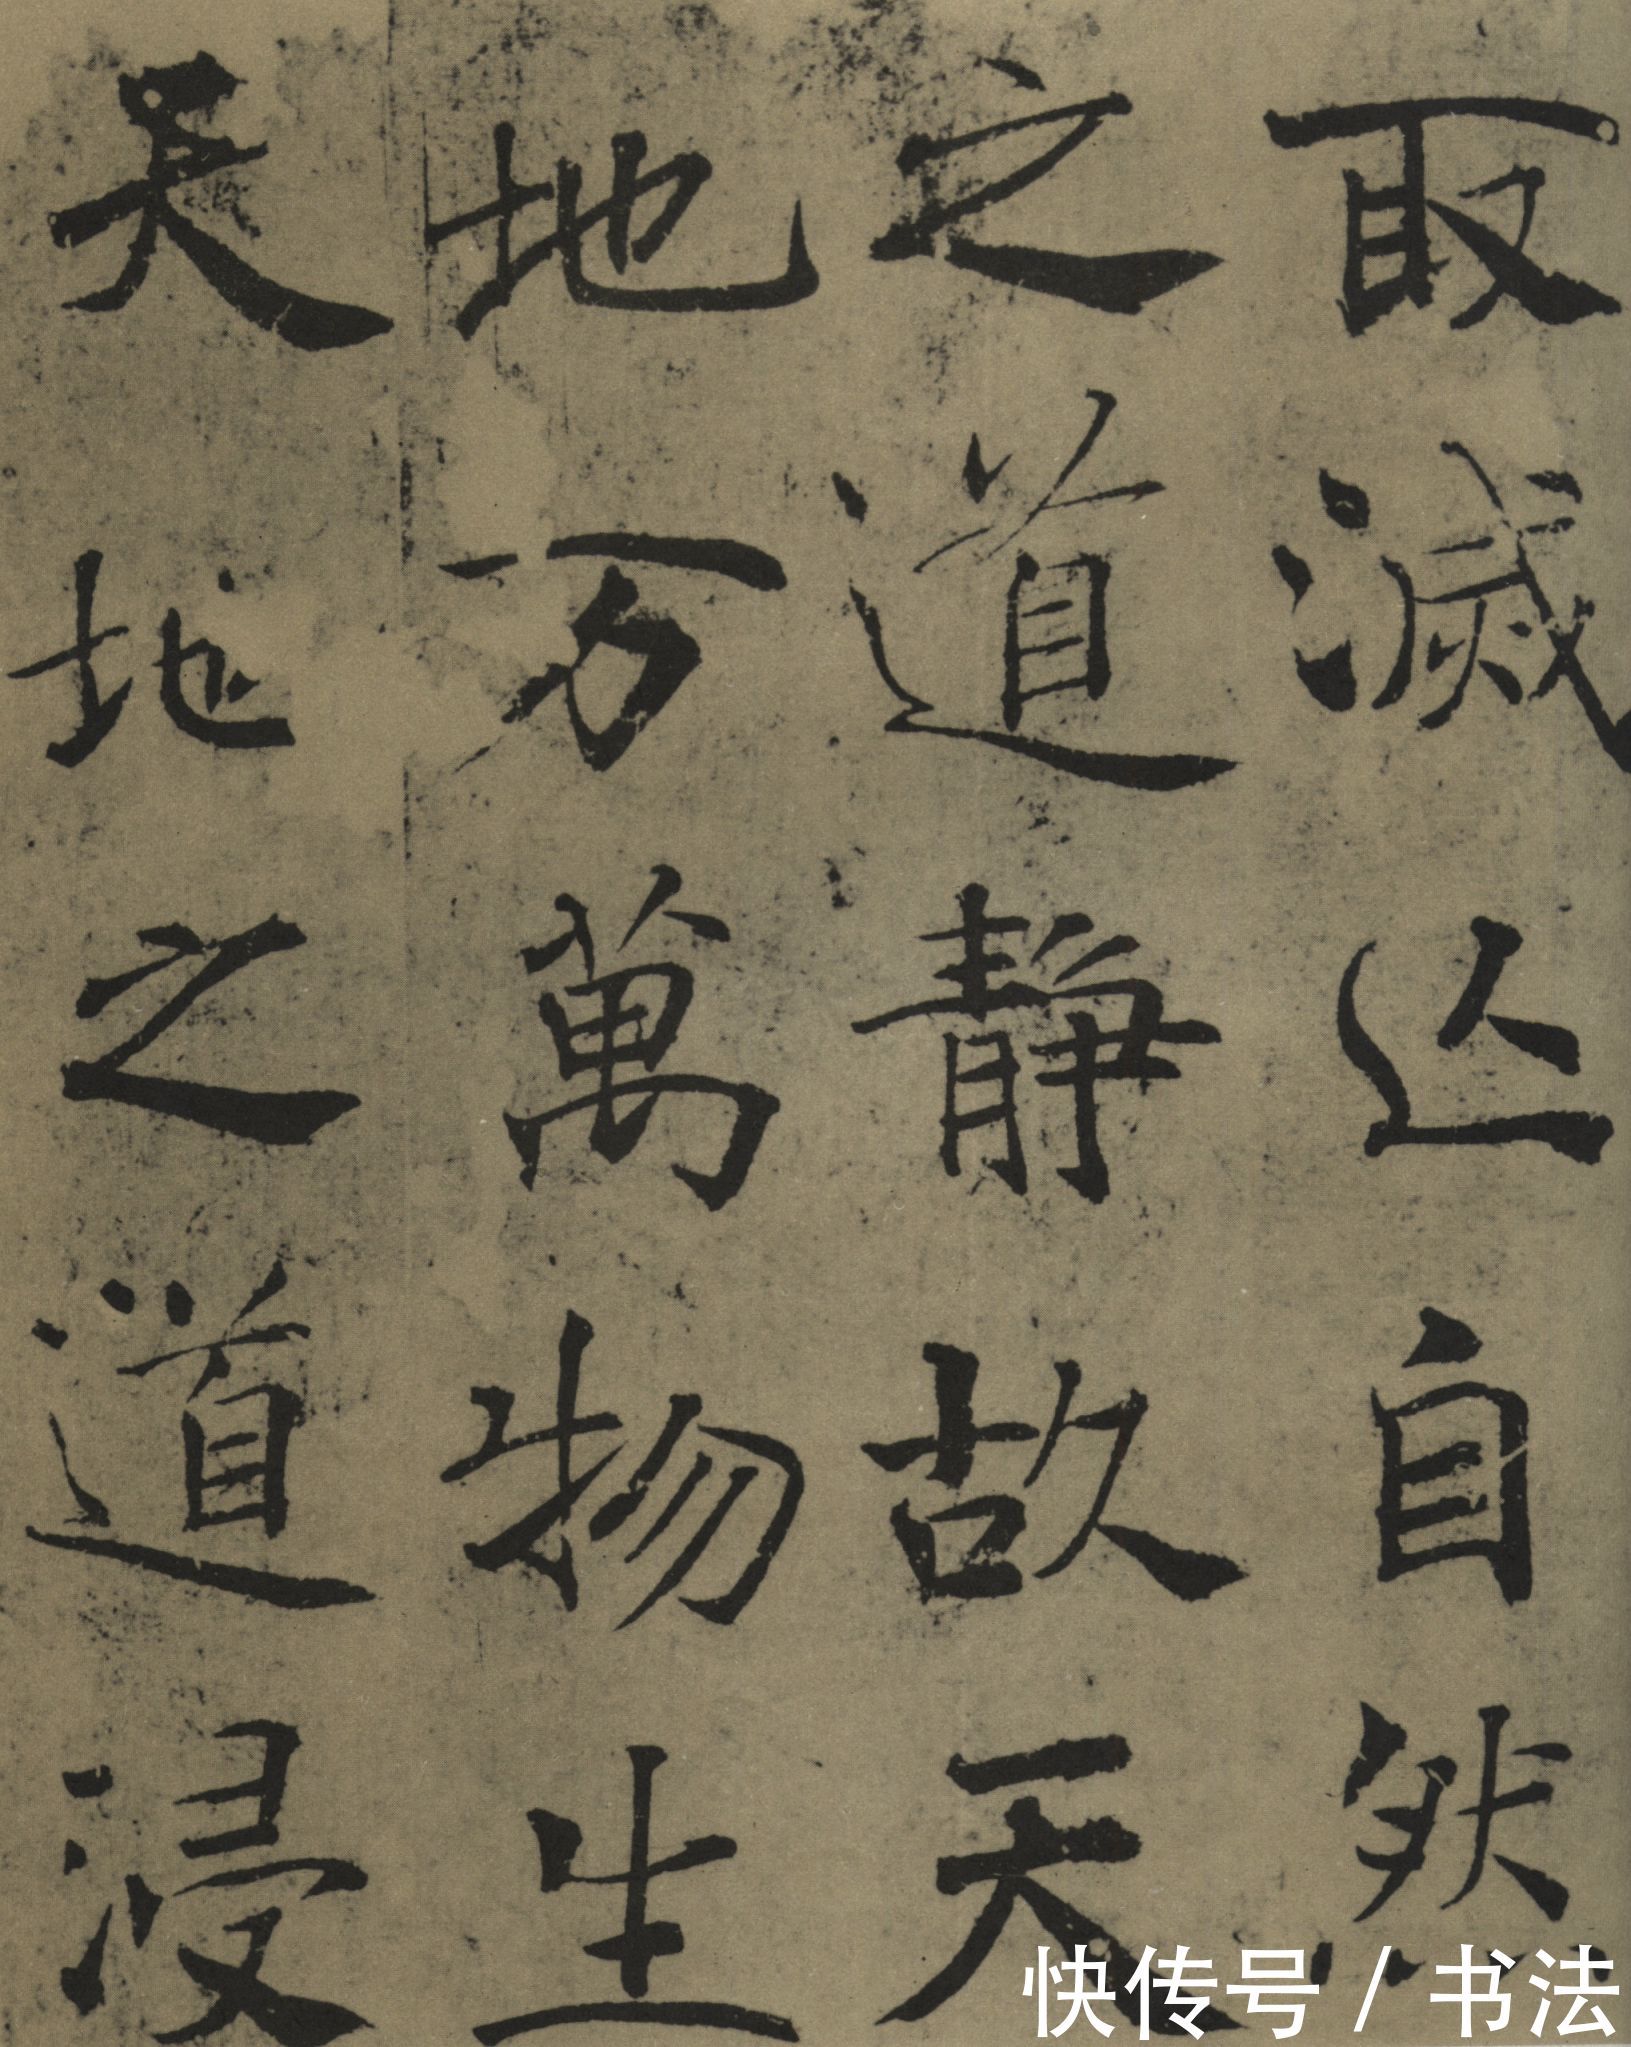 取滅亾自然
之道静故天
地万萬物生
天地之道浸
快传号 / 书法